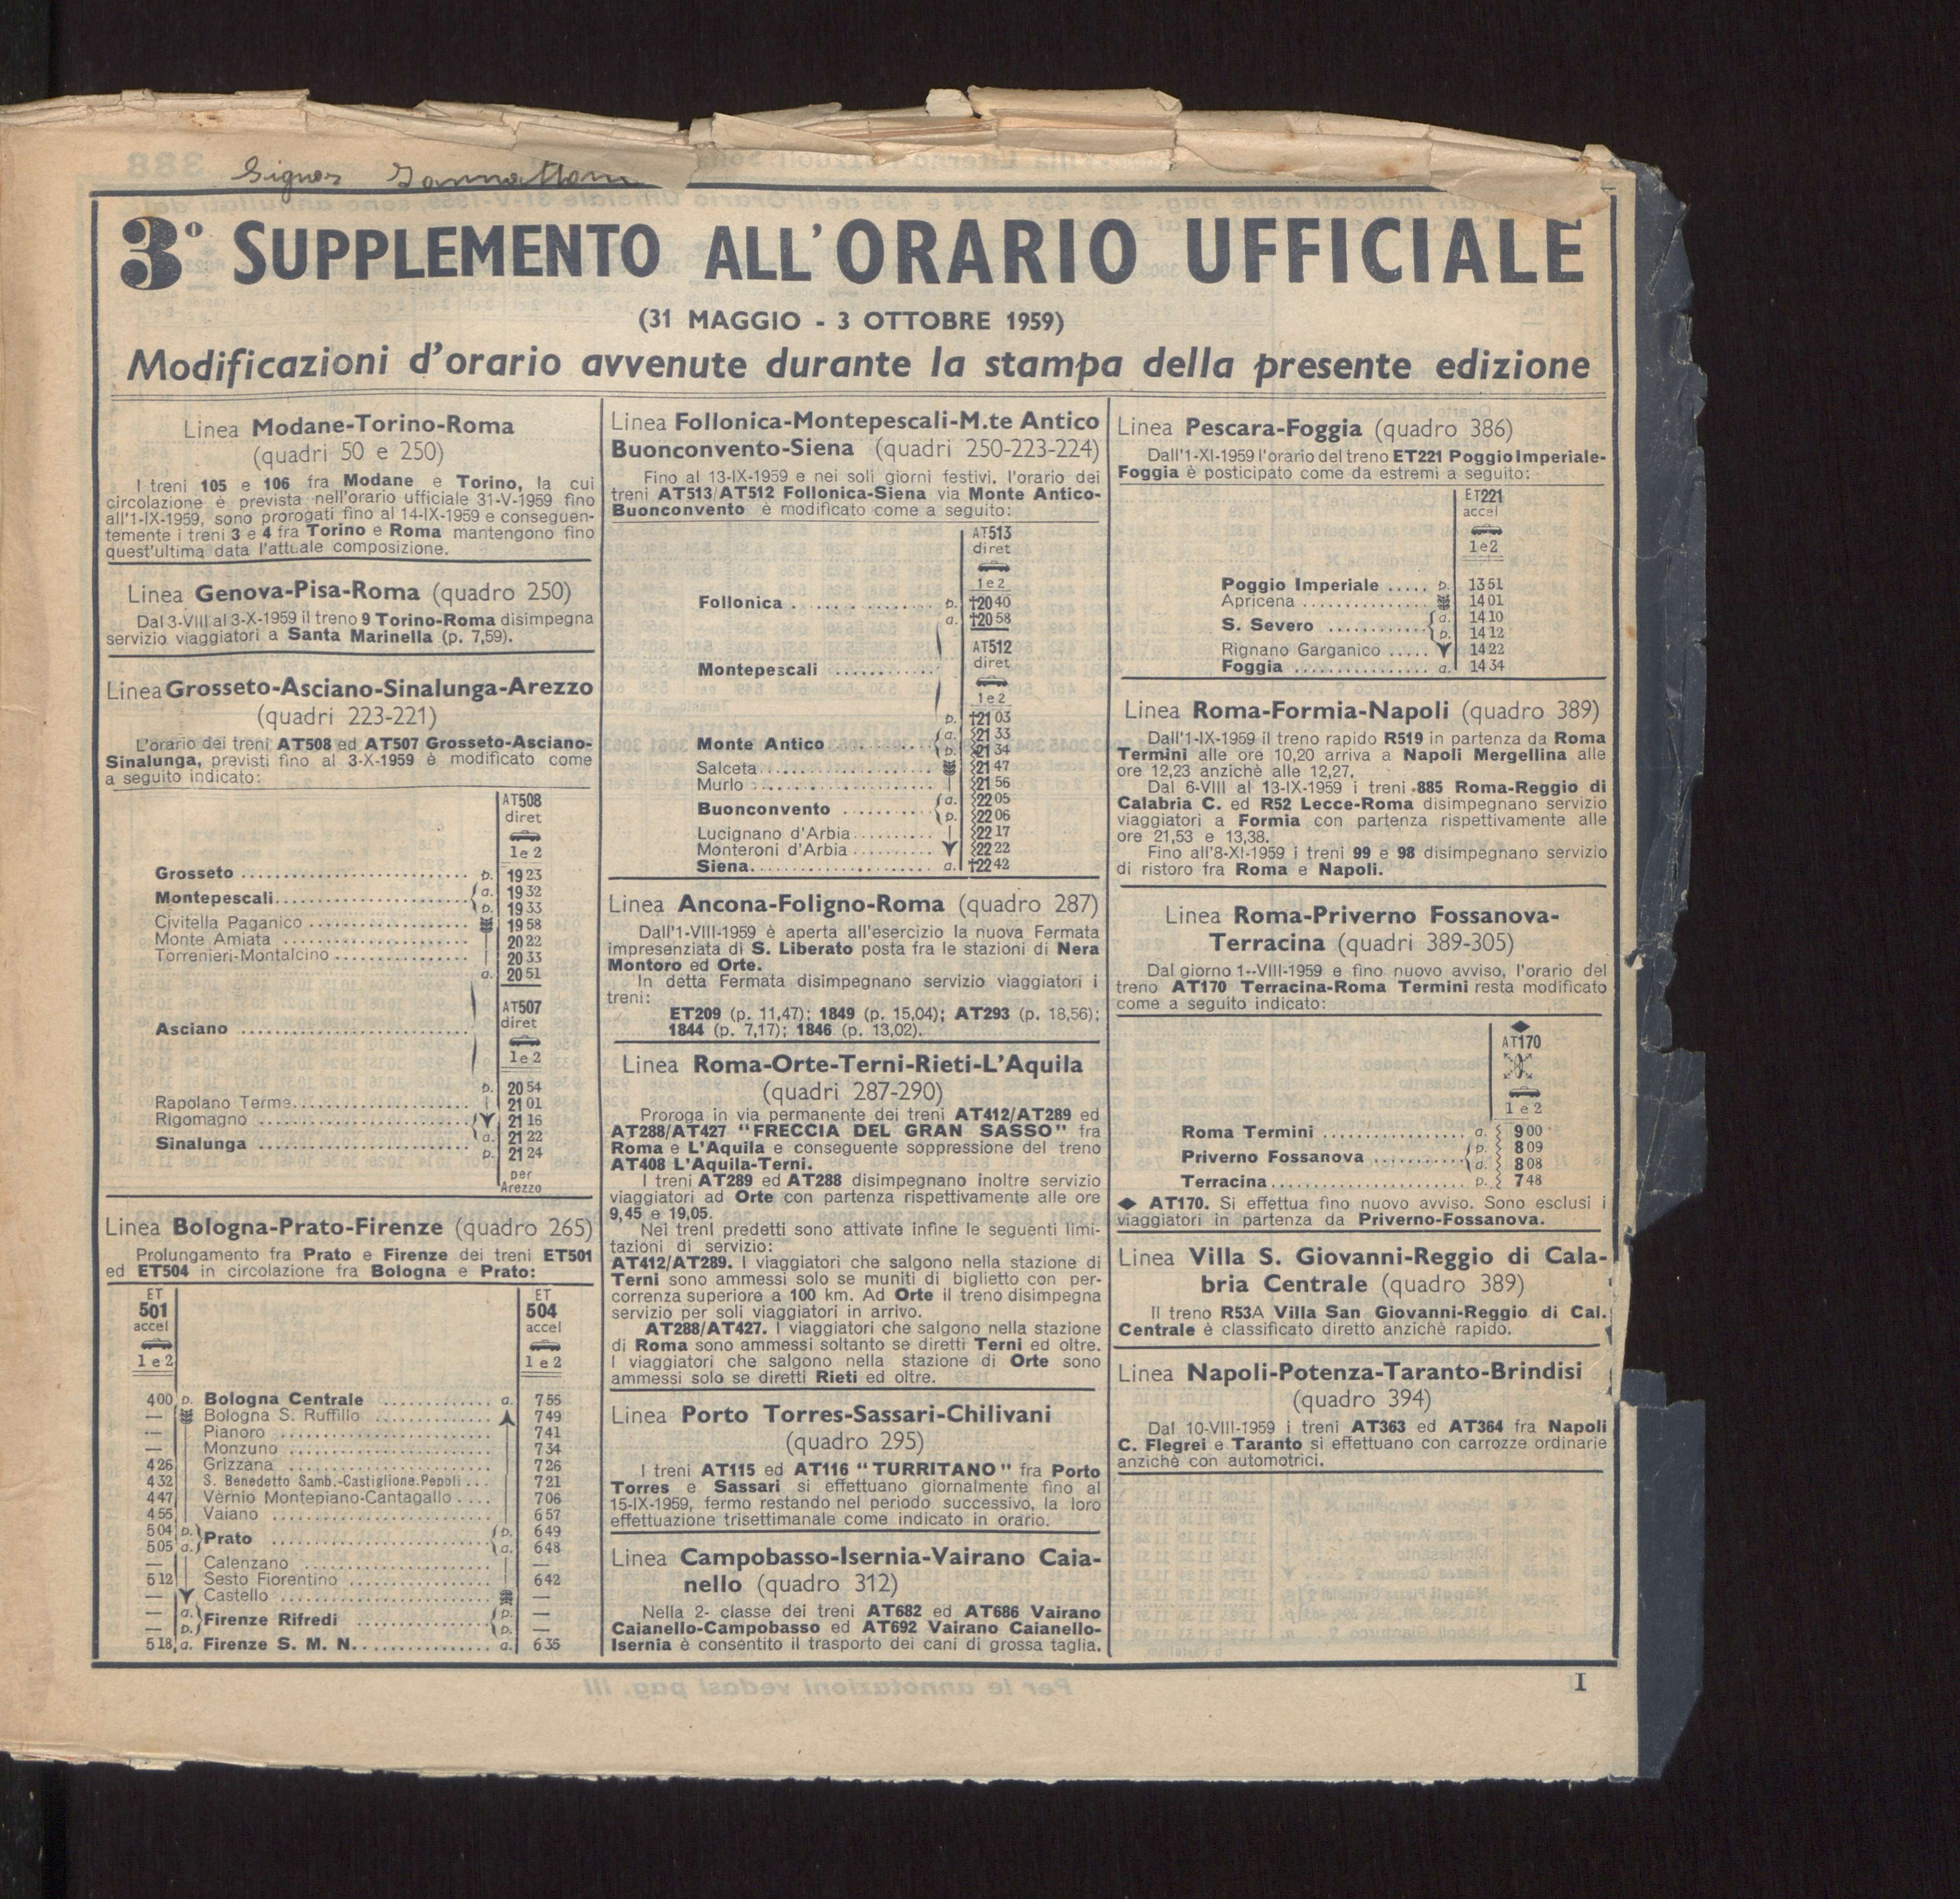 Signor
3° SUPPLEMENTO ALL'ORARIO UFFICIALE
(31 MAGGIO - 3 OTTOBRE 1959)
Modificazioni d'orario avvenute durante la stampa della presente edizione
Linea Modane-Torino-Roma
(quadri 50 e 250)
I treni 105 e 106 fra Modane e Torino, la cui
circolazione è prevista nell'orario ufficiale 31-V-1959 fino
all'1-IX-1959, sono prorogati fino al 14-IX-1959 e conseguen-
temente i treni 3 e 4 fra Torino e Roma mantengono fino
quest'ultima data l'attuale composizione.
Linea Genova-Pisa-Roma (quadro 250)
Dal 3-VIII al 3-X-1959 il treno 9 Torino-Roma disimpegna
servizio viaggiatori a Santa Marinella (p. 7,59).
Linea Grosseto-Asciano-Sinalunga-Arezzo
(quadri 223-221)
L'orario dei treni AT508 ed AT507 Grosseto-Asciano-
Sinalunga, previsti fino al 3-X-1959 è modificato come
a seguito indicato:
AT508
diret
1e2
Grosseto p. 19 23
Montepescali a. 19 32
p. 19 33
Civitella Paganico 19 58
Monte Amiata 20 22
Torrenieri-Montalcino 20 33
a. 20 51
AT507
Asciano diret
1e2
p. 20 54
Rapolano Terme 21 01
Rigomagno 21 16
Sinalunga a. 21 22
p. 21 24
per
Arezzo
Linea Bologna-Prato-Firenze (quadro 265)
Prolungamento fra Prato e Firenze dei treni ET501
ed ET504 in circolazione fra Bologna e Prato:
ET ET
501 504
accel accel
1e2 1e2
400 p. Bologna Centrale a. 755
— Bologna S. Ruffillo 749
— Pianoro 741
— Monzuno 734
426 Grizzana 726
432 S. Benedetto Samb.-Castiglione.Pepoli 721
447 Vèrnio Montepiano-Cantagallo 706
455 Vaiano 657
504 p. Prato p. 649
505 a. a. 648
— Calenzano —
512 Sesto Fiorentino 642
— Castello —
— a. Firenze Rifredi p. —
— p. p. —
518 a. Firenze S. M. N. a. 635
Linea Follonica-Montepescali-M.te Antico
Buonconvento-Siena (quadri 250-223-224)
Fino al 13-IX-1959 e nei soli giorni festivi, l'orario dei
treni AT513/AT512 Follonica-Siena via Monte Antico-
Buonconvento è modificato come a seguito:
AT513
diret
1e2
Follonica p. †20 40
a. †20 58
AT512
Montepescali diret
1e2
p. †21 03
Monte Antico a. 21 33
p. 21 34
Salceta 21 47
Murlo 21 56
Buonconvento a. 22 05
p. 22 06
Lucignano d'Arbia 22 17
Monteroni d'Arbia 22 22
Siena a. †22 42
Linea Ancona-Foligno-Roma (quadro 287)
Dall'1-VIII-1959 è aperta all'esercizio la nuova Fermata
impresenziata di S. Liberato posta fra le stazioni di Nera
Montoro ed Orte.
In detta Fermata disimpegnano servizio viaggiatori i
treni:
ET209 (p. 11,47); 1849 (p. 15,04); AT293 (p. 18,56);
1844 (p. 7,17); 1846 (p. 13,02).
Linea Roma-Orte-Terni-Rieti-L'Aquila
(quadri 287-290)
Proroga in via permanente dei treni AT412/AT289 ed
AT288/AT427 "FRECCIA DEL GRAN SASSO" fra
Roma e L'Aquila e conseguente soppressione del treno
AT408 L'Aquila-Terni.
I treni AT289 ed AT288 disimpegnano inoltre servizio
viaggiatori ad Orte con partenza rispettivamente alle ore
9,45 e 19,05.
Nei treni predetti sono attivate infine le seguenti limi-
tazioni di servizio:
AT412/AT289. I viaggiatori che salgono nella stazione di
Terni sono ammessi solo se muniti di biglietto con per-
correnza superiore a 100 km. Ad Orte il treno disimpegna
servizio per soli viaggiatori in arrivo.
AT288/AT427. I viaggiatori che salgono nella stazione
di Roma sono ammessi soltanto se diretti Terni ed oltre.
I viaggiatori che salgono nella stazione di Orte sono
ammessi solo se diretti Rieti ed oltre.
Linea Porto Torres-Sassari-Chilivani
(quadro 295)
I treni AT115 ed AT116 "TURRITANO" fra Porto
Torres e Sassari si effettuano giornalmente fino al
15-IX-1959, fermo restando nel periodo successivo, la loro
effettuazione trisettimanale come indicato in orario.
Linea Campobasso-Isernia-Vairano Caia-
nello (quadro 312)
Nella 2- classe dei treni AT682 ed AT686 Vairano
Caianello-Campobasso ed AT692 Vairano Caianello-
Isernia è consentito il trasporto dei cani di grossa taglia.
Linea Pescara-Foggia (quadro 386)
Dall'1-XI-1959 l'orario del treno ET221 Poggio Imperiale-
Foggia è posticipato come da estremi a seguito:
ET221
accel
1e2
Poggio Imperiale p. 13 51
Apricena 14 01
S. Severo a. 14 10
p. 14 12
Rignano Garganico 14 22
Foggia a. 14 34
Linea Roma-Formia-Napoli (quadro 389)
Dall'1-IX-1959 il treno rapido R519 in partenza da Roma
Termini alle ore 10,20 arriva a Napoli Mergellina alle
ore 12,23 anzichè alle 12,27.
Dal 6-VIII al 13-IX-1959 i treni 885 Roma-Reggio di
Calabria C. ed R52 Lecce-Roma disimpegnano servizio
viaggiatori a Formia con partenza rispettivamente alle
ore 21,53 e 13,38.
Fino all'8-XI-1959 i treni 99 e 98 disimpegnano servizio
di ristoro fra Roma e Napoli.
Linea Roma-Priverno Fossanova-
Terracina (quadri 389-305)
Dal giorno 1--VIII-1959 e fino nuovo avviso, l'orario del
treno AT170 Terracina-Roma Termini resta modificato
come a seguito indicato:
◆
AT170
1e2
Roma Termini a. 9 00
Priverno Fossanova p. 8 09
a. 8 08
Terracina p. 7 48
◆ AT170. Si effettua fino nuovo avviso. Sono esclusi i
viaggiatori in partenza da Priverno-Fossanova.
Linea Villa S. Giovanni-Reggio di Cala-
bria Centrale (quadro 389)
Il treno R53A Villa San Giovanni-Reggio di Cal.
Centrale è classificato diretto anzichè rapido.
Linea Napoli-Potenza-Taranto-Brindisi
(quadro 394)
Dal 10-VIII-1959 i treni AT363 ed AT364 fra Napoli
C. Flegrei e Taranto si effettuano con carrozze ordinarie
anzichè con automotrici.
I